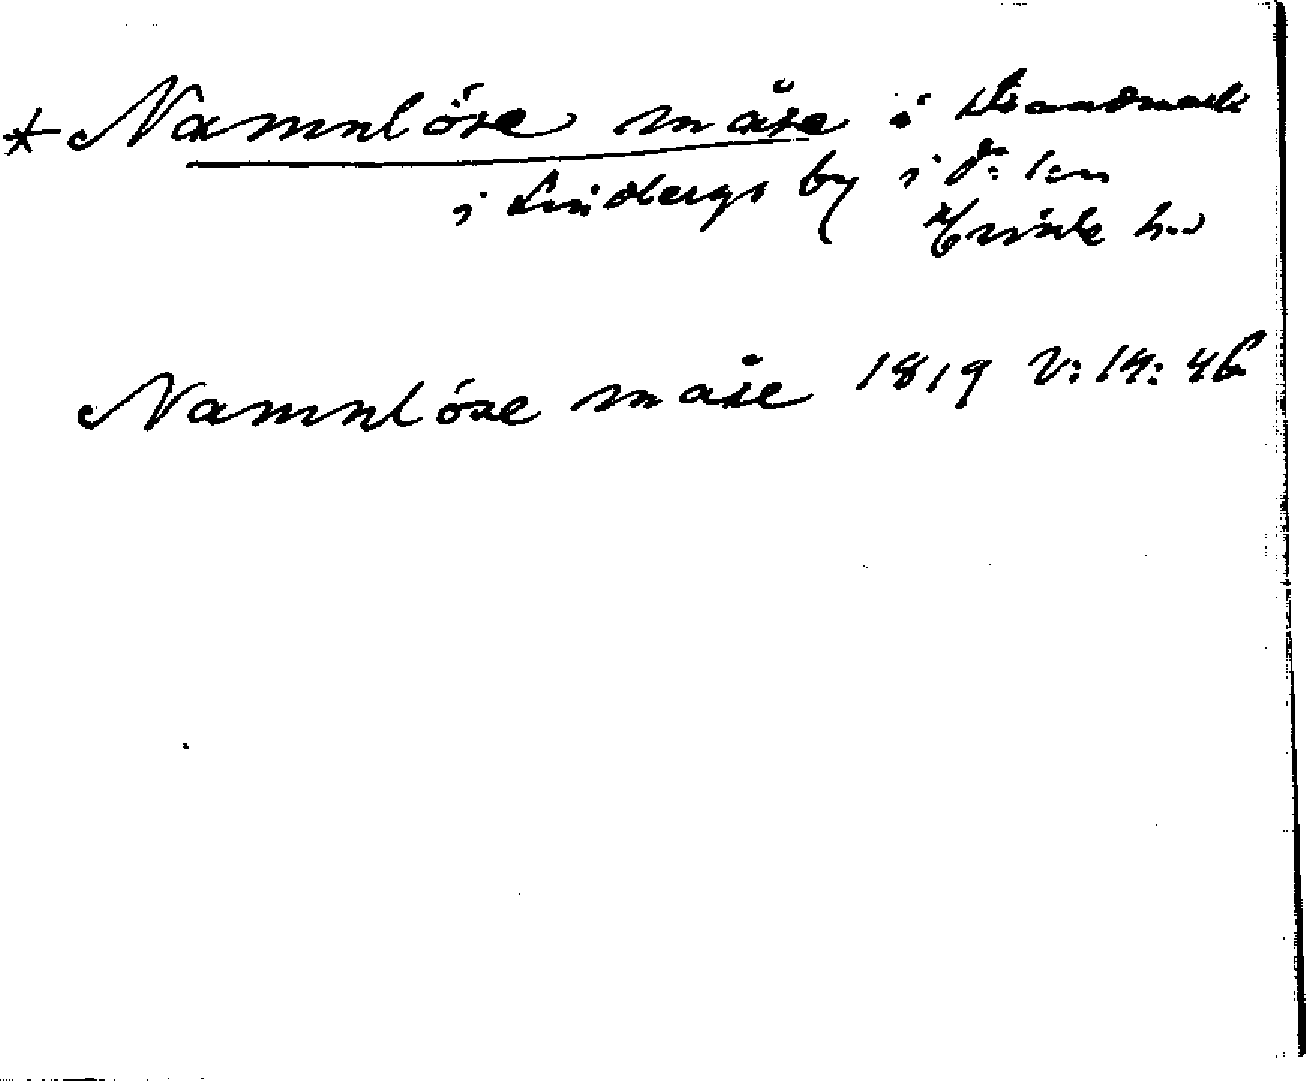 * Namnlöse måse i Brandmark
i Lindbergs by i d:o sn
Gunills h:d
Namnlöse måse 1819 V: 14: 46